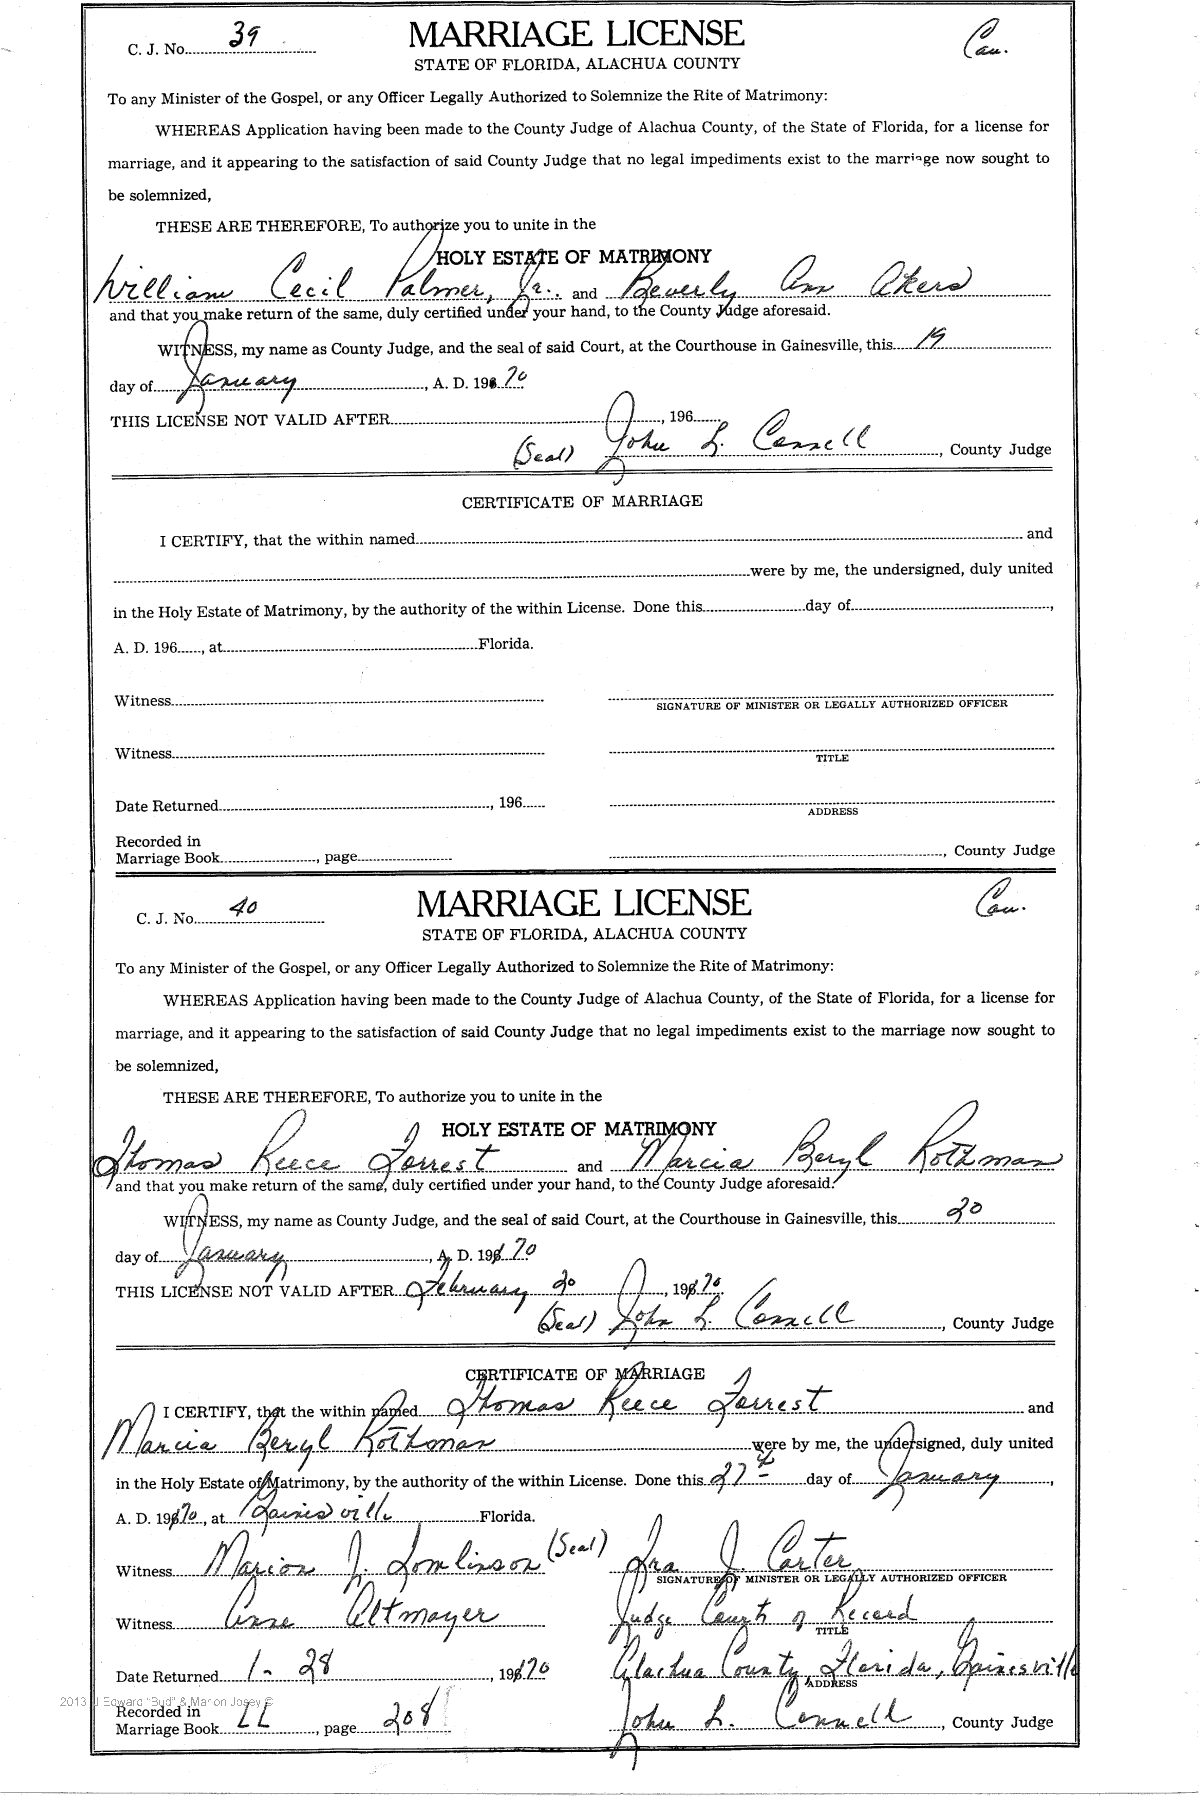 C. J. No. 39
MARRIAGE LICENSE
Cau.
STATE OF FLORIDA, ALACHUA COUNTY
To any Minister of the Gospel, or any Officer Legally Authorized to Solemnize the Rite of Matrimony:
WHEREAS Application having been made to the County Judge of Alachua County, of the State of Florida, for a license for
marriage, and it appearing to the satisfaction of said County Judge that no legal impediments exist to the marriage now sought to
be solemnized,
THESE ARE THEREFORE, To authorize you to unite in the
HOLY ESTATE OF MATRIMONY
William Cecil Palmer, Jr. and Beverly Ann Akers
and that you make return of the same, duly certified under your hand, to the County Judge aforesaid.
WITNESS, my name as County Judge, and the seal of said Court, at the Courthouse in Gainesville, this 19
day of January, A. D. 196 70
THIS LICENSE NOT VALID AFTER , 196
(Seal) John L. Connell, County Judge
CERTIFICATE OF MARRIAGE
I CERTIFY, that the within named and
were by me, the undersigned, duly united
in the Holy Estate of Matrimony, by the authority of the within License. Done this day of ,
A. D. 196 , at Florida.
Witness
SIGNATURE OF MINISTER OR LEGALLY AUTHORIZED OFFICER
Witness
TITLE
Date Returned , 196
ADDRESS
Recorded in
Marriage Book , page , County Judge
C. J. No. 40
MARRIAGE LICENSE
Cau.
STATE OF FLORIDA, ALACHUA COUNTY
To any Minister of the Gospel, or any Officer Legally Authorized to Solemnize the Rite of Matrimony:
WHEREAS Application having been made to the County Judge of Alachua County, of the State of Florida, for a license for
marriage, and it appearing to the satisfaction of said County Judge that no legal impediments exist to the marriage now sought to
be solemnized,
THESE ARE THEREFORE, To authorize you to unite in the
HOLY ESTATE OF MATRIMONY
Thomas Reece Forrest and Marcia Beryl Rothman
and that you make return of the same, duly certified under your hand, to the County Judge aforesaid.
WITNESS, my name as County Judge, and the seal of said Court, at the Courthouse in Gainesville, this 20
day of January, A. D. 196 70
THIS LICENSE NOT VALID AFTER February 20, 196 70
(Seal) John L. Connell, County Judge
CERTIFICATE OF MARRIAGE
I CERTIFY, that the within named Thomas Reece Forrest and
Marcia Beryl Rothman were by me, the undersigned, duly united
in the Holy Estate of Matrimony, by the authority of the within License. Done this 27th day of January,
A. D. 196 70, at Gainesville Florida.
Witness Marion J. Tomlinson (Seal) Ira J. Carter
SIGNATURE OF MINISTER OR LEGALLY AUTHORIZED OFFICER
Witness Anne Altmayer Judge Court of Record
TITLE
Date Returned 1-28, 196 70 Alachua County, Florida, Gainesville
ADDRESS
2013 J Edward "Bud" & Marion Josey ©
Recorded in
Marriage Book LL, page 208 John L. Connell, County Judge